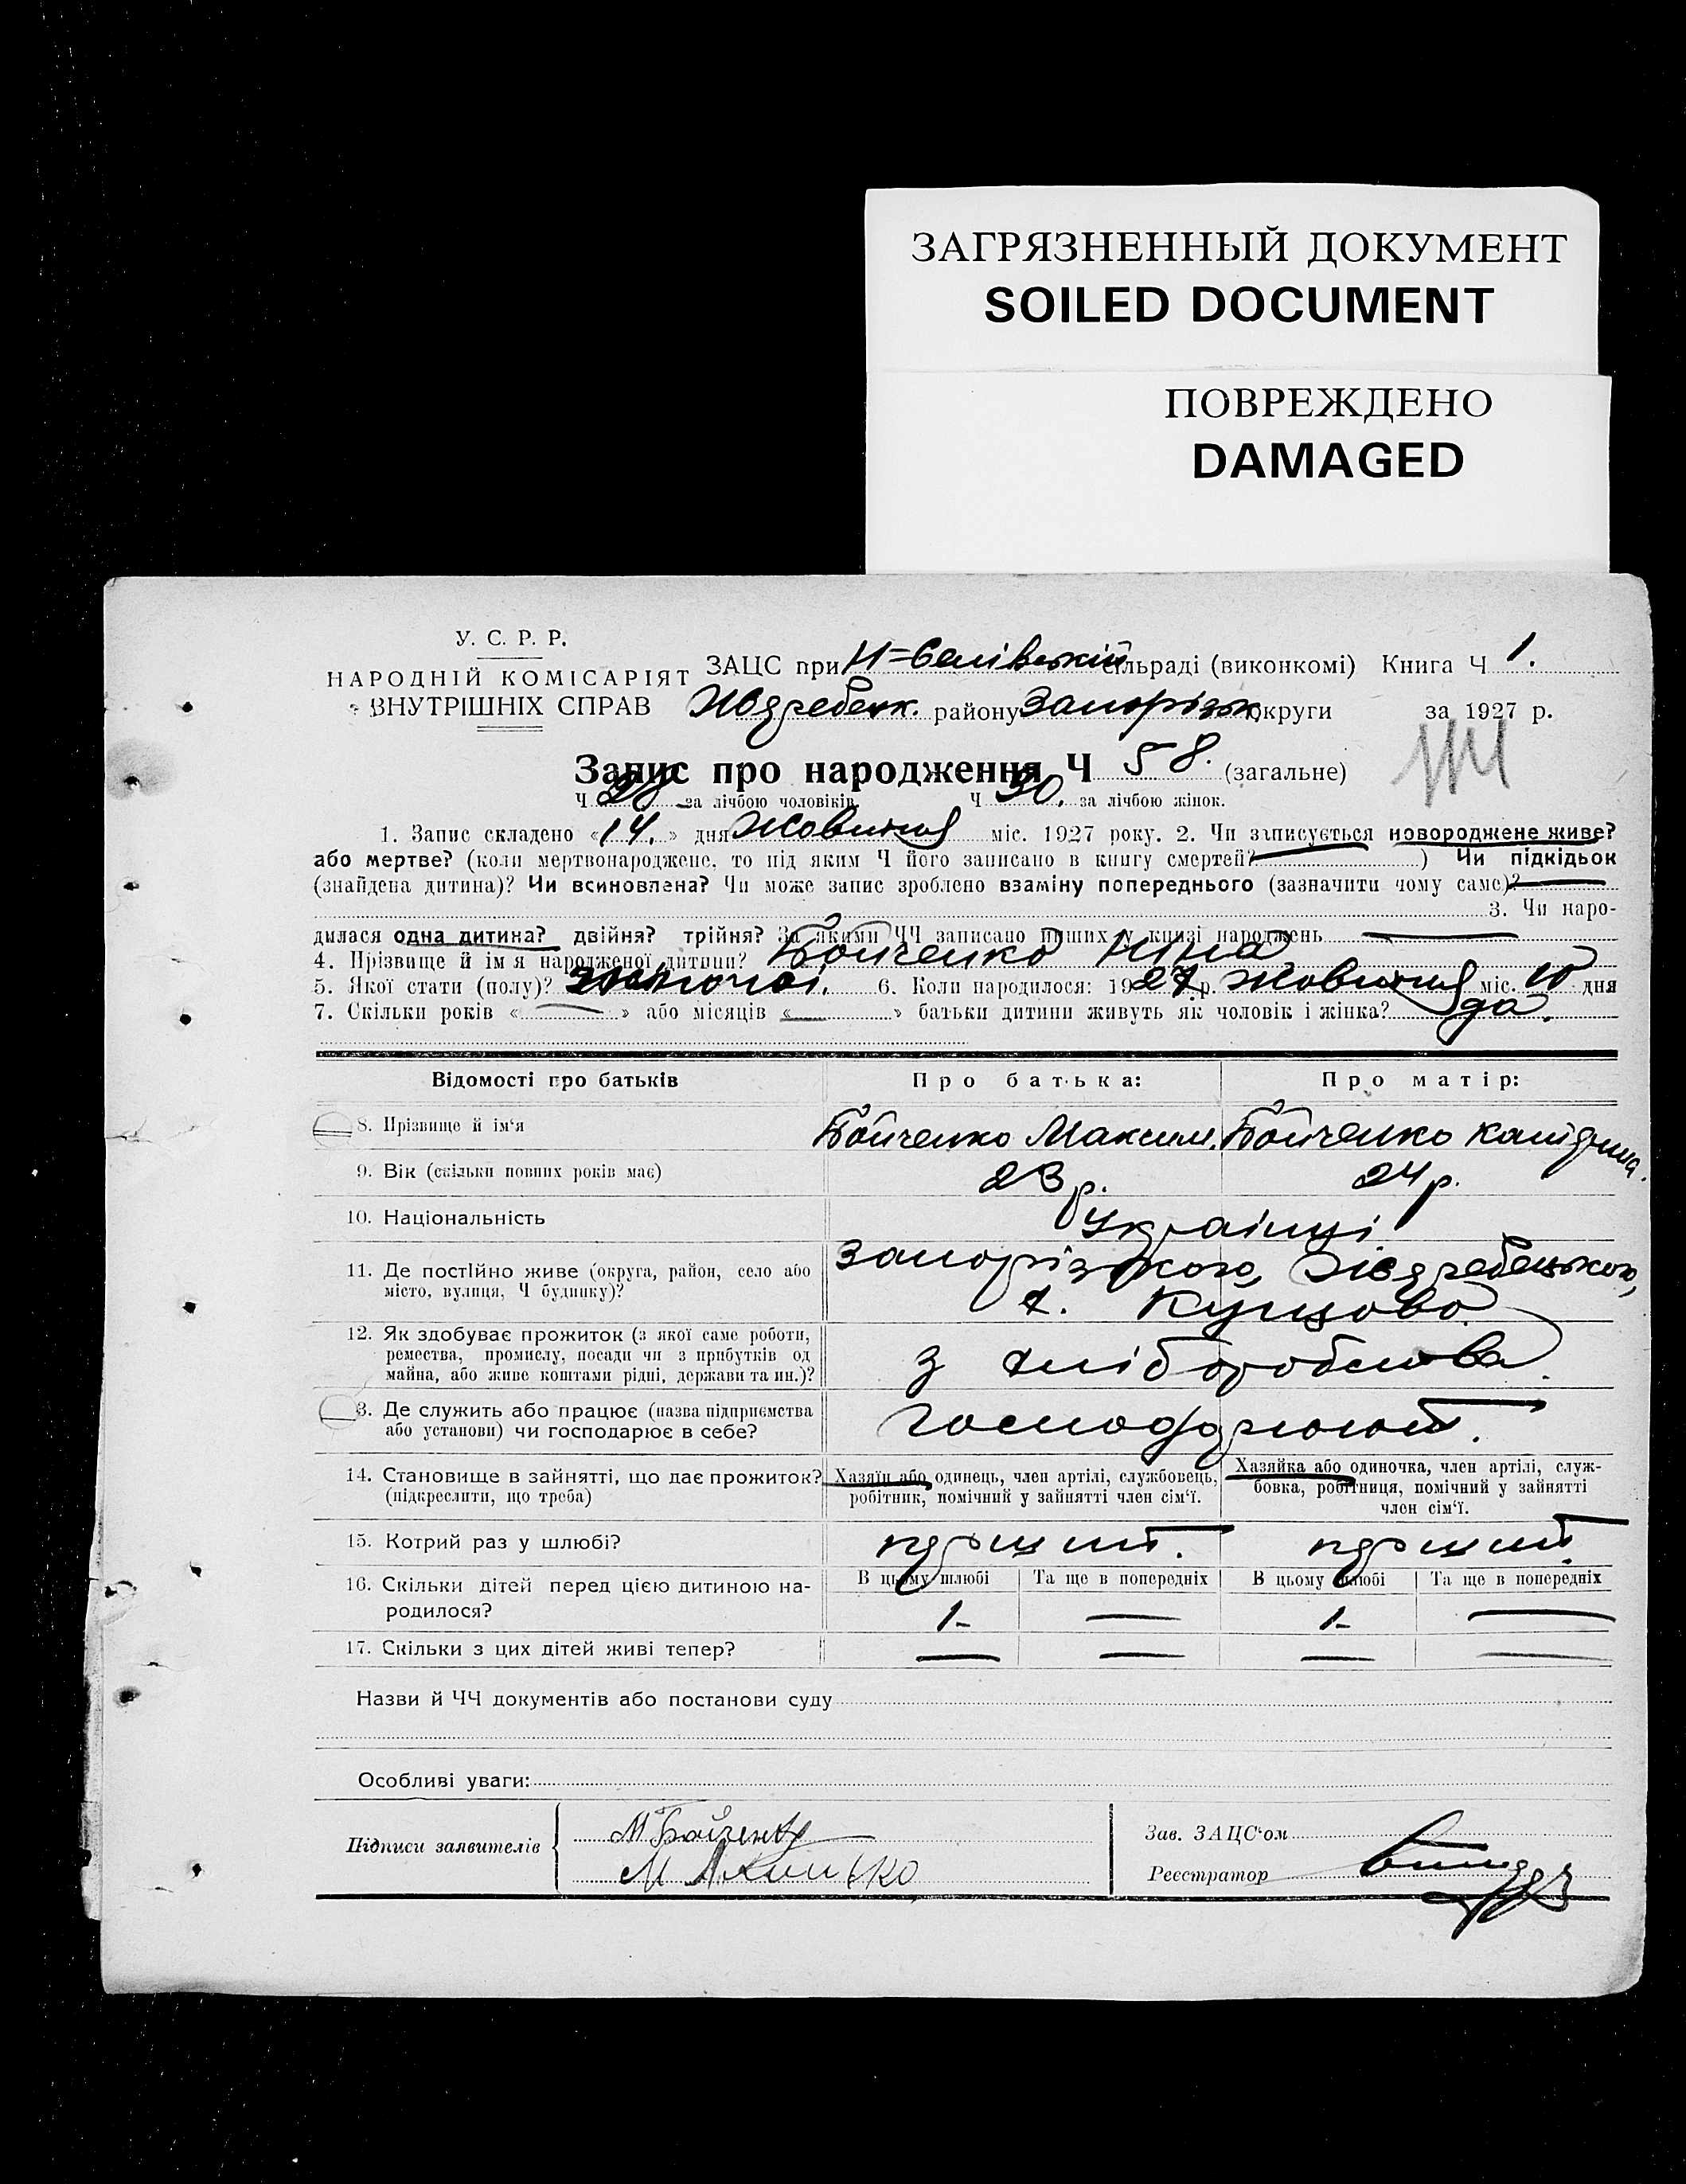 ЗАГРЯЗНЕННЫЙ ДОКУМЕНТ
SOILED DOCUMENT
ПОВРЕЖДЕНО
DAMAGED
У. С. Р. Р.
НАРОДНІЙ КОМІСАРІЯТ
ВНУТРІШНІХ СПРАВ
ЗАЦС при сільраді (виконкомі) Книга Ч 1.
Жеребецьк. району Запорізьк. округи за 1927 р.
Запис про народження Ч 58. (загальне)
Ч 28 за лічбою чоловіків. Ч 30. за лічбою жінок.
1. Запис складено «14.» дня Жовтня міс. 1927 року. 2. Чи записується новороджене живе?
або мертве? (коли мертвонароджене, то під яким Ч його записано в книгу смертей? ) Чи підкідьок
(знайдена дитина)? Чи всиновлена? Чи може запис зроблено взаміну попереднього (зазначити чому саме)?
3. Чи наро-
дилася одна дитина? двійня? трійня? За якими ЧЧ записано инших у книзі народжень
4. Прізвище й ім я народженої дитини? Бойченко Ніна
5. Якої стати (полу)? жіночої. 6. Коли народилося: 1927 р. Жовтня міс. 10 дня
7. Скільки років « » або місяців « » батьки дитини живуть як чоловік і жінка? да.
Відомості про батьків Про батька: Про матір:
8. Прізвище й ім‘я Бойченко Максим. Бойченко Катерина.
9. Вік (скільки повних років має) 23 р. 24 р.
10. Національність Українці
11. Де постійно живе (округа, район, село або Запорізького, Жеребецького,
місто, вулиця, Ч будинку)? х. Купцово.
12. Як здобуває прожиток (з якої саме роботи,
ремества, промислу, посади чи з прибутків од з хліборобства.
майна, або живе коштами рідні, держави та ин.)?
13. Де служить або працює (назва підприємства Господарюють.
або установи) чи господарює в себе?
14. Становище в зайнятті, що дає прожиток? Хазяїн або одинець, член артілі, службовець, Хазяйка або одиночка, член артілі, служ-
(підкреслити, що треба) робітник, помічний у зайнятті член сім‘ї. бовка, робітниця, помічний у зайнятті
член сім‘ї.
15. Котрий раз у шлюбі? перший. перший.
16. Скільки дітей перед цією дитиною на- В цьому шлюбі Та ще в попередніх В цьому шлюбі Та ще в попередніх
родилося? 1- 1-
17. Скільки з цих дітей живі тепер?
Назви й ЧЧ документів або постанови суду
Особливі уваги:
Підписи заявителів М Бойченко Зав. ЗАЦС‘ом
Реєстратор